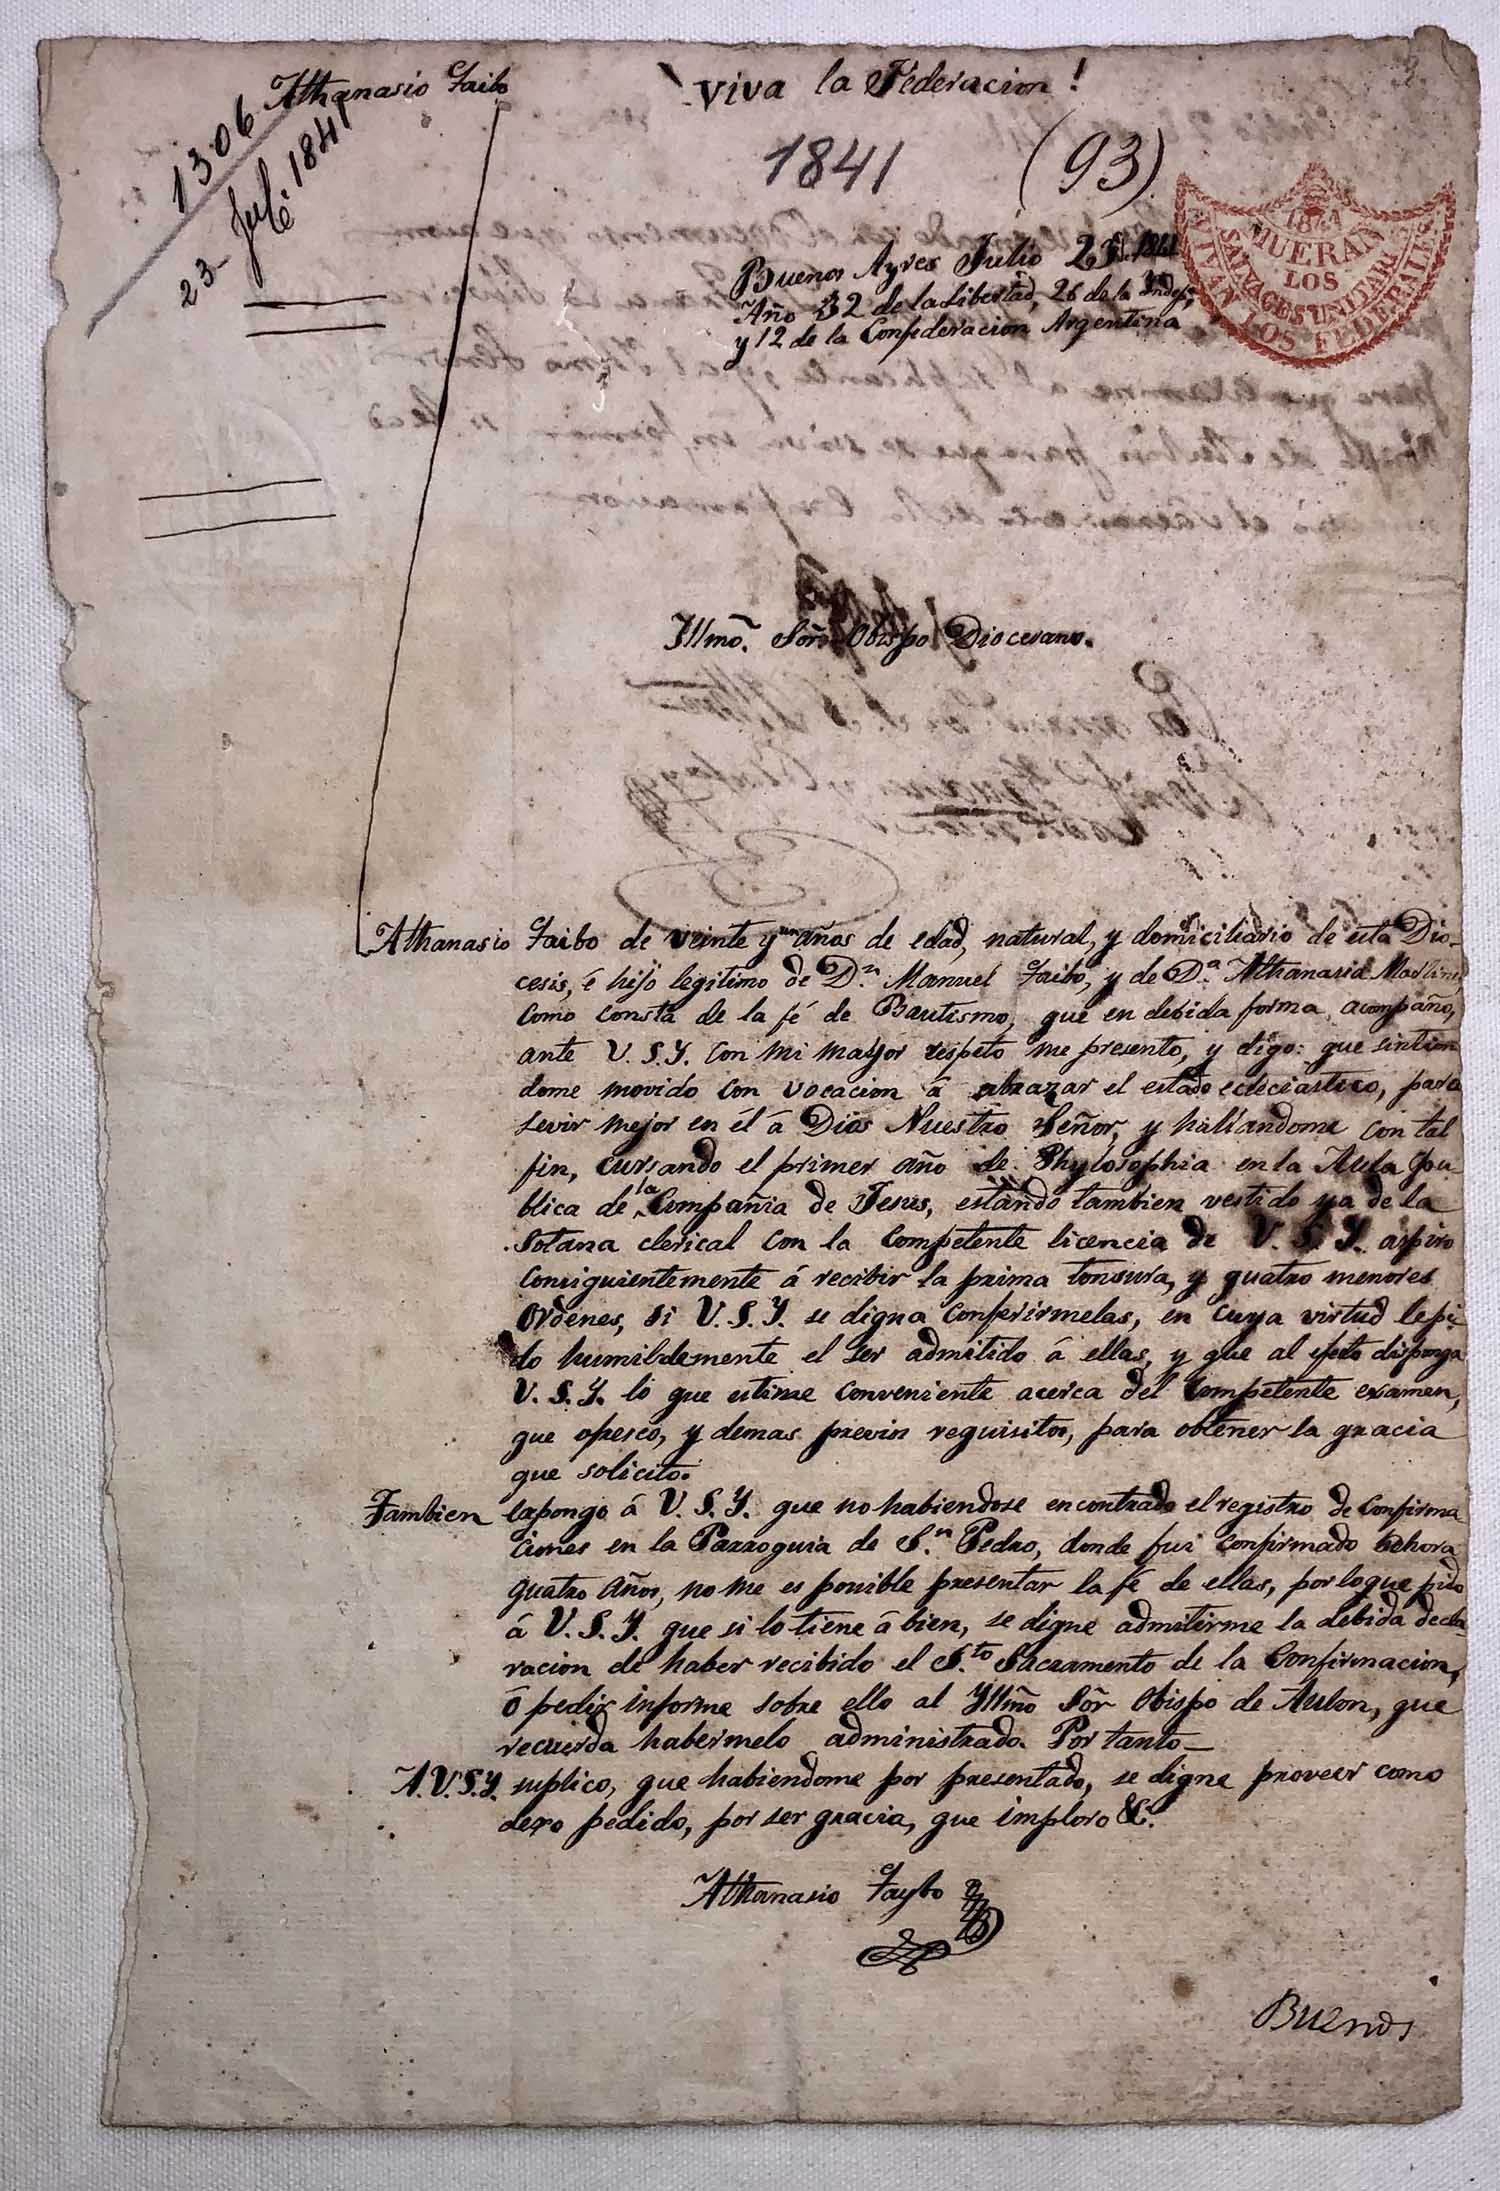 Athanasio Taibo
¡Viva la Federacion!
1306
23 Jul. 1841
1841 (93)
Buenos Ayres Julio 23 1841
Año 32 de la Libertad, 26 de la Indep.ª
y 12 de la Confederacion Argentina
1841
MUERAN
LOS
SALVAGES UNITARI
VIVAN LOS FEDERALES
Yllmõ. Soñr. Obispo Diocesano.
Athanasio Taibo de veinte y un años de edad, natural, y domiciliario de esta Dio-
cesis, é hijo legitimo de D.n Manuel Taibo, y de D.a Athanasia Martinez,
como consta de la fé de Bautismo, que en debida forma acompaño,
ante V.S.Y. con mi mayor respeto me presento, y digo: que sintien
dome movido con vocacion á abrazar el estado ecleciastico, para
sevir mejor en él á Dios Nuestro Señor, y hallandome con tal
fin, cursando el primer año de Phylosophia en la Aula Pu-
blica de la Compañia de Jesus, estando tambien vestido ya de la
Sotana clerical con la competente licencia de V.S.Y. aspiro
consiguientemente á recibir la prima tonsura, y quatro menores
Ordenes, si V.S.Y. se digna conferirmelas, en cuya virtud le pi-
do humildemente el ser admitido á ellas, y que al efeto disponga
V.S.Y. lo que estime conveniente acerca del competente examen,
que ofresco, y demas previos requisitos, para obtener la gracia
que solicito.
Tambien expongo á V.S.Y. que no habiendose encontrado el registro de Confirma
ciones en la Parroquia de S.n Pedro, donde fui confirmado hahora
quatro años, no me es posible presentar la fé de ellas, por lo que pido
á V.S.Y. que si lo tiene á bien, se digne admitirme la debida decla-
racion de haber recibido el S.to Sacramento de la Confirmacion,
ó pedir informe sobre ello al Yllmõ Sõr Obispo de Aulon, que
recuerda habermelo administrado. Por tanto—
A.V.S.Y. suplico, que habiendome por presentado, se digne proveer como
dexo pedido, por ser gracia, que imploro &c.
Athanasio Taybo
Buenos